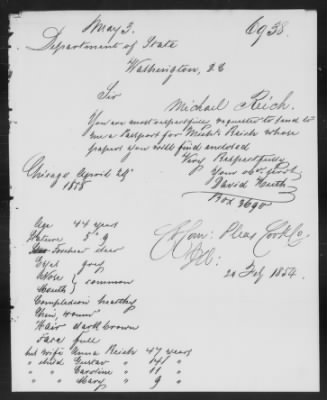 May 3.
6938.
Department of State
Washington, DC
Sir
Michael Reich.
You are most respectfully requested to send to
me a Passport for Michl. Reich whose
papers you will find enclosed
Very Respectfully
Your obt. servt
David
Box 3690
Chicago April 29
1878
Age 44 years
Stature 5' 9
Forehead
Eyes grey
Nose } common
Mouth }
Complexion healthy
Chin, round
Hair dark brown
Face full
his wife Anna Reich 47 years
" child Gustav " 14 "
" " Caroline " 11 "
" " Mary " 9 "
Com. Pleas Cook Co.
Ill.
20 Feby 1854.